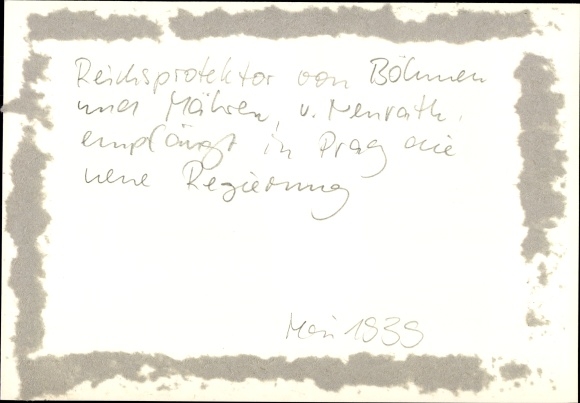 Reichsprotektor von Böhmen
und Mähren, v. Neurath,
empfängt in Prag die
neue Regierung
Mai 1939